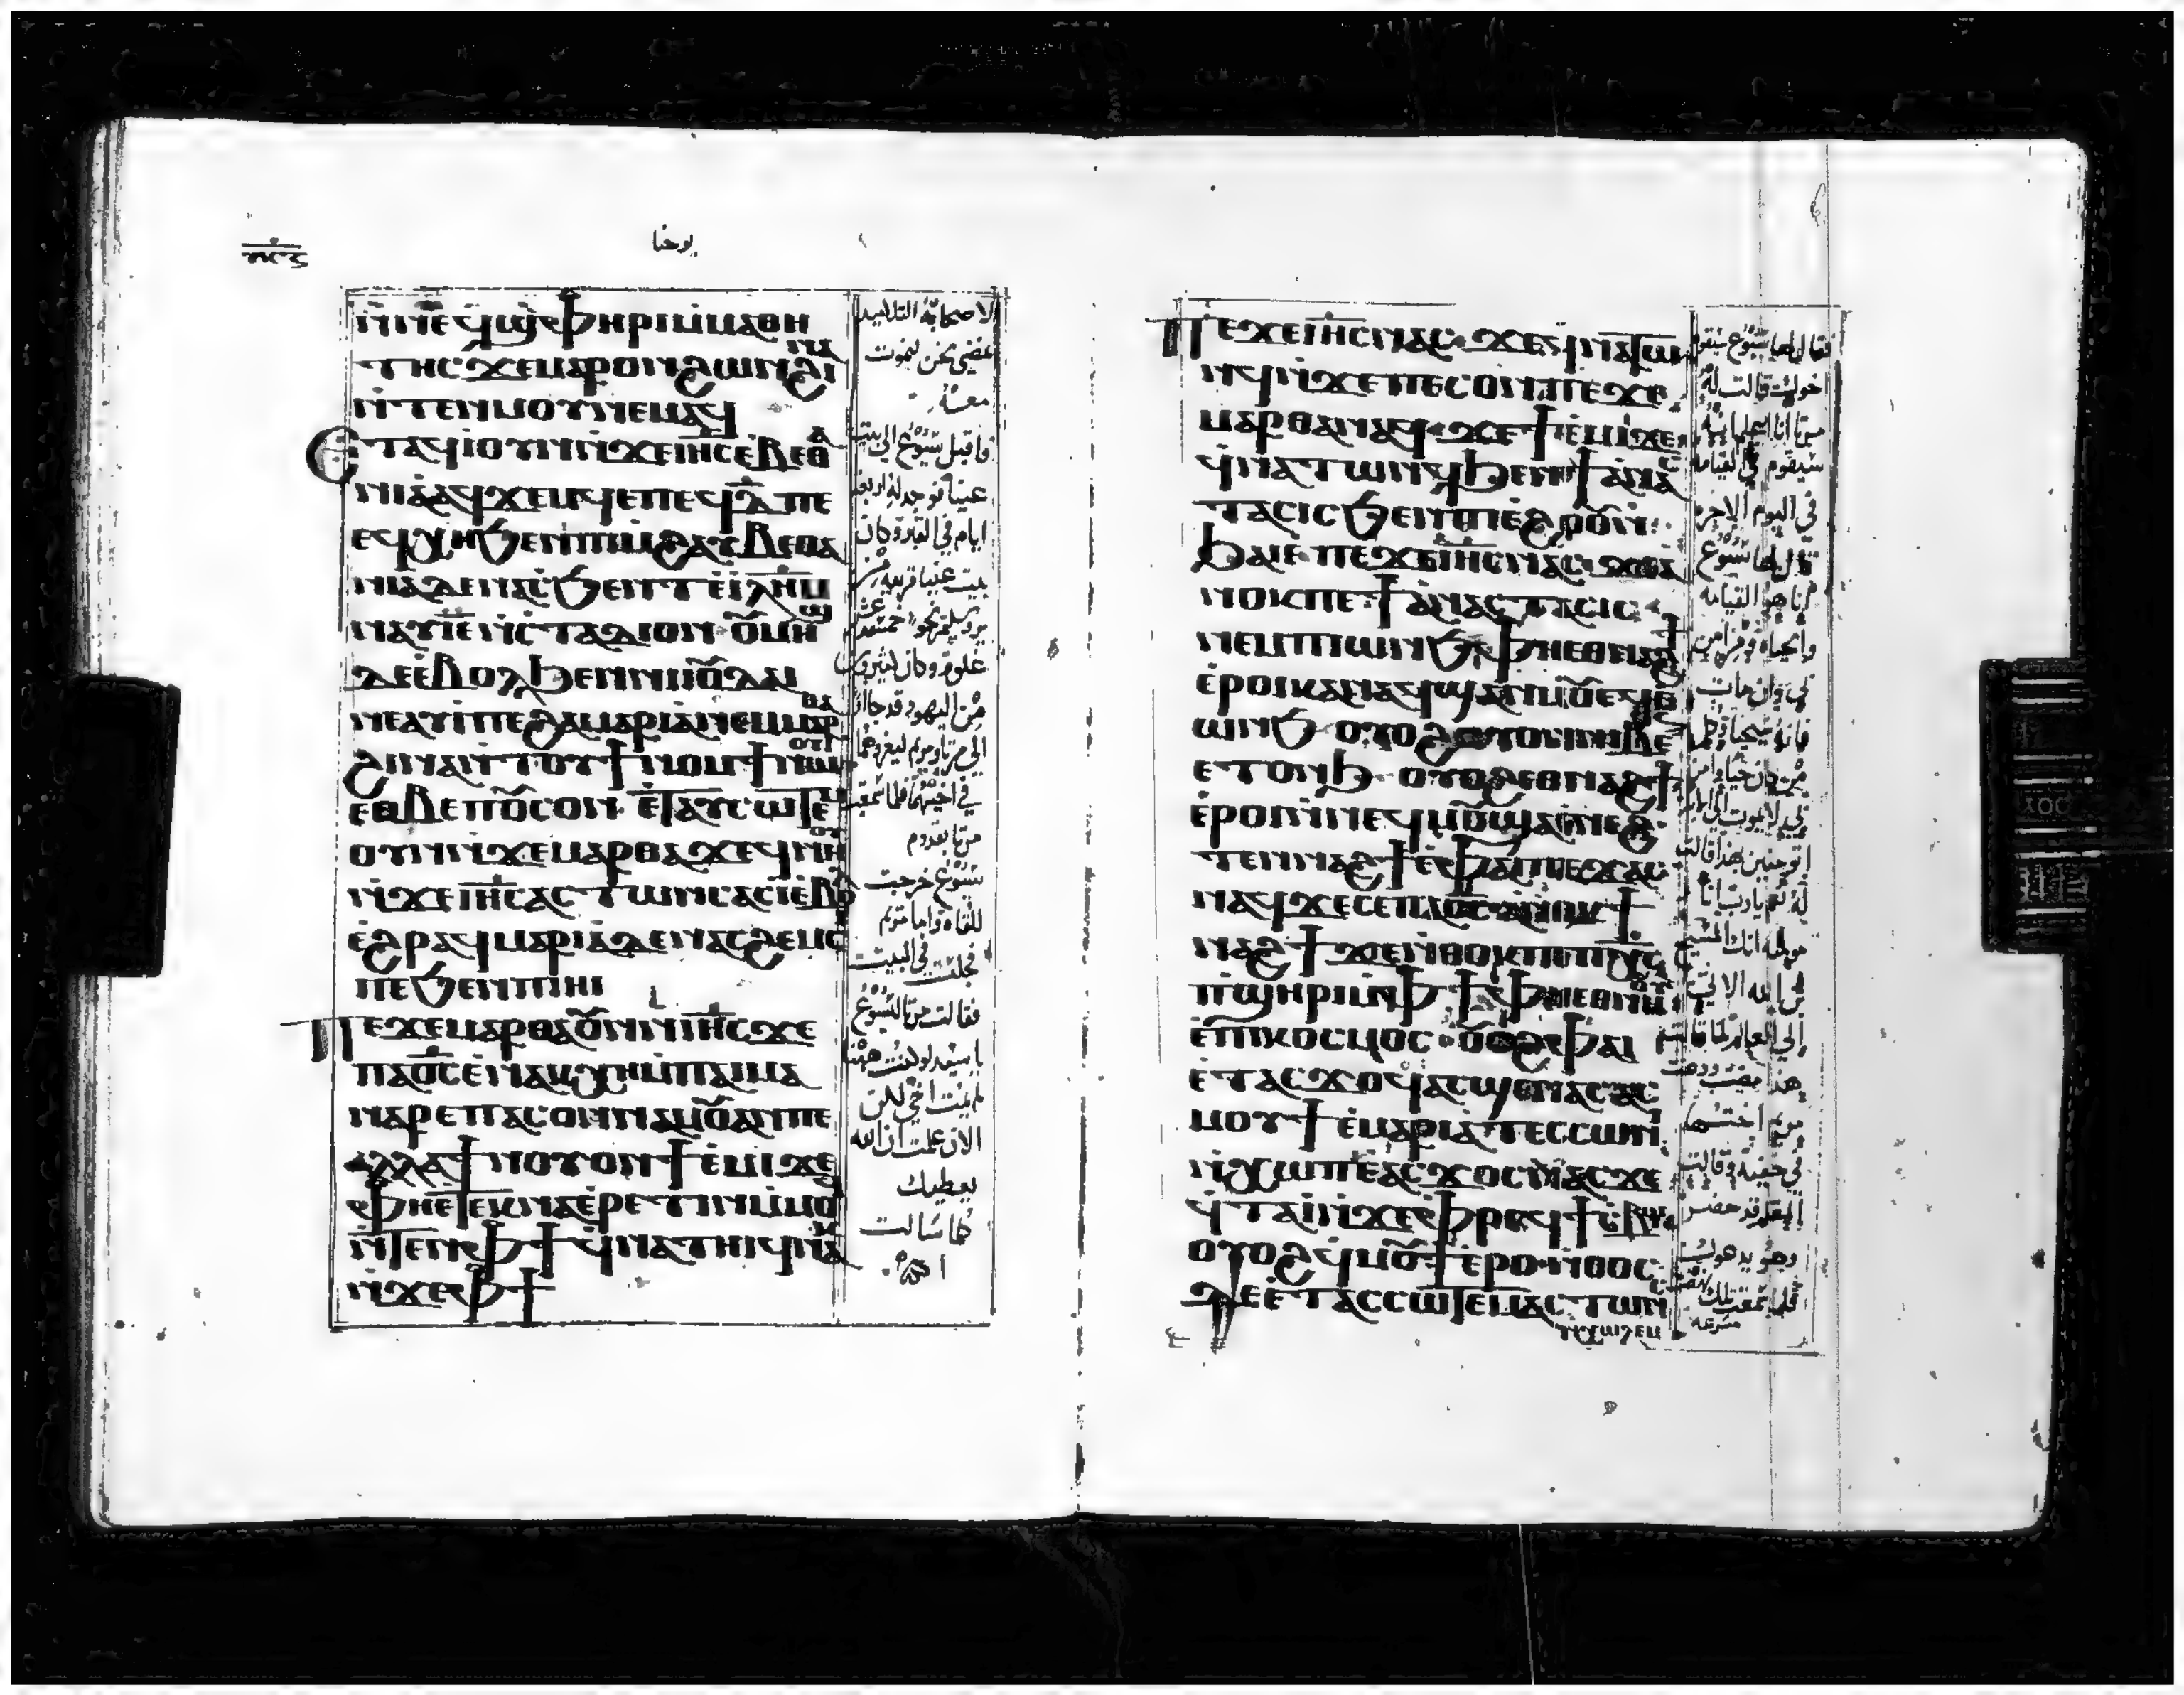 يوحنا
ⲛ̀ⲛⲉϥϣⲫⲏⲣⲓⲙ̀ⲙⲁⲑⲏ
ⲧⲏⲥϫⲉⲙⲁⲣⲟⲛϩⲱⲛϩⲓⲛⲁ
ⲛ̀ⲧⲉⲛⲙⲟⲩⲛⲉⲙⲁϥ
ⲉⲧⲁϥⲓ̀ⲟⲩⲛⲛ̀ϫⲉⲓⲏⲥⲉ̀ⲃⲉⲑⲁ
ⲛⲓⲁ̀ⲁϥϫⲉⲙϥⲉⲡⲉϥⲇ̅ⲡⲉ
ⲉϥⲭⲏϧⲉⲛⲡⲓⲙ̀ϩⲁⲩⲃⲉⲑⲁ
ⲛⲓⲁⲇⲉⲛⲁⲥϧⲉⲛⲧⲉⲓ̀ⲗⲏⲙ
ⲛⲁⲩⲓ̅ⲉ̅ⲛ̀ⲥⲧⲁⲇⲓⲟⲛ ⲟ̅ⲙⲏϣ
ⲇⲉⲉ̀ⲃⲟⲗϧⲉⲛⲛⲓⲓⲟ̅ⲇⲁⲓ
ⲛⲉⲁⲩⲓ̀ⲡⲉϩⲁⲙⲁⲣⲓⲁⲛⲉⲙⲙⲁⲣⲑⲁ
ϩⲓⲛⲁⲛ̀ⲧⲟⲩϯⲛⲟⲙϯⲛⲱⲟⲩ
ⲉⲑⲃⲉⲡⲟ̅ⲥⲟⲛ ⲉ̀ⲧⲁⲥⲥⲱⲧⲉⲙ
ⲟⲩⲛⲛ̀ϫⲉⲙⲁⲣⲑⲁϫⲉϥⲛⲏⲟⲩ
ⲛ̀ϫⲉⲓⲏⲥⲁⲥⲧⲱⲛⲥⲁⲥⲓ̀ⲉ̀ⲃⲟⲗ
ⲉ̀ϩⲣⲁϥⲙⲁⲣⲓⲁⲇⲉⲛⲁⲥϩⲉⲙⲥⲓ
ⲡⲉϧⲉⲛⲡⲓⲏⲓ
ⲡⲉϫⲉⲙⲁⲣⲑⲁⲟ̅ⲛⲛ̀ⲓⲏⲥϫⲉ
ⲡⲁⲟ̅ⲥⲉ̀ⲛⲁⲕⲭⲏⲙ̀ⲡⲁⲓⲙⲁ
ⲛⲁⲣⲉⲡⲁⲥⲟⲛⲛⲁⲙⲟ̅ⲁⲛⲡⲉ
ⲁⲗⲗⲁϯⲛⲟⲩⲟⲛϯⲉ̀ⲙⲓϫⲉ
ⲫⲏⲉⲧⲉⲕⲛⲁⲉ̀ⲣⲉⲧⲓⲛⲙ̀ⲙⲟϥ
ⲛ̀ⲧⲉⲛⲫϯϥⲛⲁⲧⲏⲓϥⲛⲁⲕ
ⲛ̀ϫⲉⲫϯ
لاصحابه التلاميذ
نمضي نحن لنموت
معه
فاقبل يسوع الى بيت
عنيا فوجد له اربعة
ايام في القبر وكان
بيت عنيا قريبه من
يروشليم نحو خمسة عشر
غلوة وكان كثيرون
من اليهود قد جاوا
الى مرتا ومريم ليعزوهما
في اخيهما فلما سمعت
مرتا بقدوم
يسوع خرجت
للقاه واما مريم
فجلست في البيت
فقالت مرتا ليسوع
يا سيد لو كنت ههنا
لم يمت اخي لكن
الان علمت ان الله
يعطيك
كما سالت
الله
ⲡⲉϫⲉⲓⲏⲥⲛⲁⲥ ϫⲉϥⲛⲁⲧⲱ
ⲛϥⲛ̀ϫⲉⲡⲉⲥⲟⲛⲡⲉϫⲉ
ⲙⲁⲣⲑⲁⲛⲁϥ ϫⲉϯⲉ̀ⲙⲓϫⲉ
ϥⲛⲁⲧⲱⲛϥϧⲉⲛϯⲁⲛⲁⲥ
ⲧⲁⲥⲓⲥϧⲉⲛⲡⲓⲉϩⲟⲟⲩⲛ
ϧⲁⲉ̀ ⲡⲉϫⲉⲓⲏⲥⲛⲁⲥ ϫⲉⲁ
ⲛⲟⲕⲡⲉϯⲁⲛⲁⲥⲧⲁⲥⲓⲥ
ⲛⲉⲙⲡⲱⲛϧ ⲫⲏⲉⲑⲛⲁϩϯ
ⲉ̀ⲣⲟⲓⲕⲁⲛⲁϥϣⲁⲛⲙⲟ̅ⲉϥⲉ
ⲱⲛϧ ⲟⲩⲟϩⲟⲩⲟⲛⲛⲓⲃⲉⲛ
ⲉⲧⲟⲛϧ ⲟⲩⲟϩⲉⲑⲛⲁϩϯ
ⲉ̀ⲣⲟⲓⲛ̀ⲛⲉϥⲙⲟ̅ϣⲁⲉ̀ⲛⲉϩ
ⲧⲉⲛⲁϩϯⲉ̀ⲫⲁⲓⲡⲉϫⲁⲥ
ⲛⲁϥϫⲉⲥⲉⲡⲁⲟ̅ⲥⲁⲛⲟⲕϯ
ⲛⲁϩϯϫⲉⲛ̀ⲑⲟⲕⲡⲉⲡⲭ̅ⲥ
ⲡ̀ϣⲏⲣⲓⲙ̀ⲫϯⲫⲏⲉⲑⲛⲏⲟⲩ
ⲉ̀ⲡⲓⲕⲟⲥⲙⲟⲥ ⲟ̅ⲟϩⲫⲁⲓ
ⲉⲧⲁⲥϫⲟϥⲁⲥϣⲉⲛⲁⲥⲁⲥ
ⲙⲟⲩϯⲉ̀ⲙⲁⲣⲓⲁⲧⲉⲥⲥⲱⲛⲓ
ⲛ̀ⲭⲱⲡⲉⲁⲥϫⲟⲥⲛⲁⲥϫⲉ
ϥⲧⲁⲓⲛ̀ϫⲉⲫⲣⲉϥϯⲥⲃⲱ
ⲟⲩⲟϩϥⲙⲟ̅ϯⲉ̀ⲣⲟ ⲛ̀ⲑⲟⲥ
ⲇⲉⲉ̀ⲧⲁⲥⲥⲱⲧⲉⲙⲁⲥⲧⲱⲛⲥ
ⲛ̀ⲭⲱⲗⲉⲙ
فقال لها يسوع سيقوم
اخوك قالت له
مرتا انا اعلم انه
سيقوم في القيامة
في اليوم الاخر
قال لها يسوع
انا هو القيامة
والحياة ومن امن
بي وان مات
فانه سيحيا وكل
من كان حيا وامن
بي لا يموت الى الابد
اتومنين بهذا قالت
له نعم يا رب انا
مومنة انك المسيح
ابن الله الاتي
الى العالم لما قالت
هذا مضت ودعت
مريم اختها
في خفية وقالت
المعلم قد حضر
وهو يدعوك
فلما سمعت تلك نهضت
مسرعة